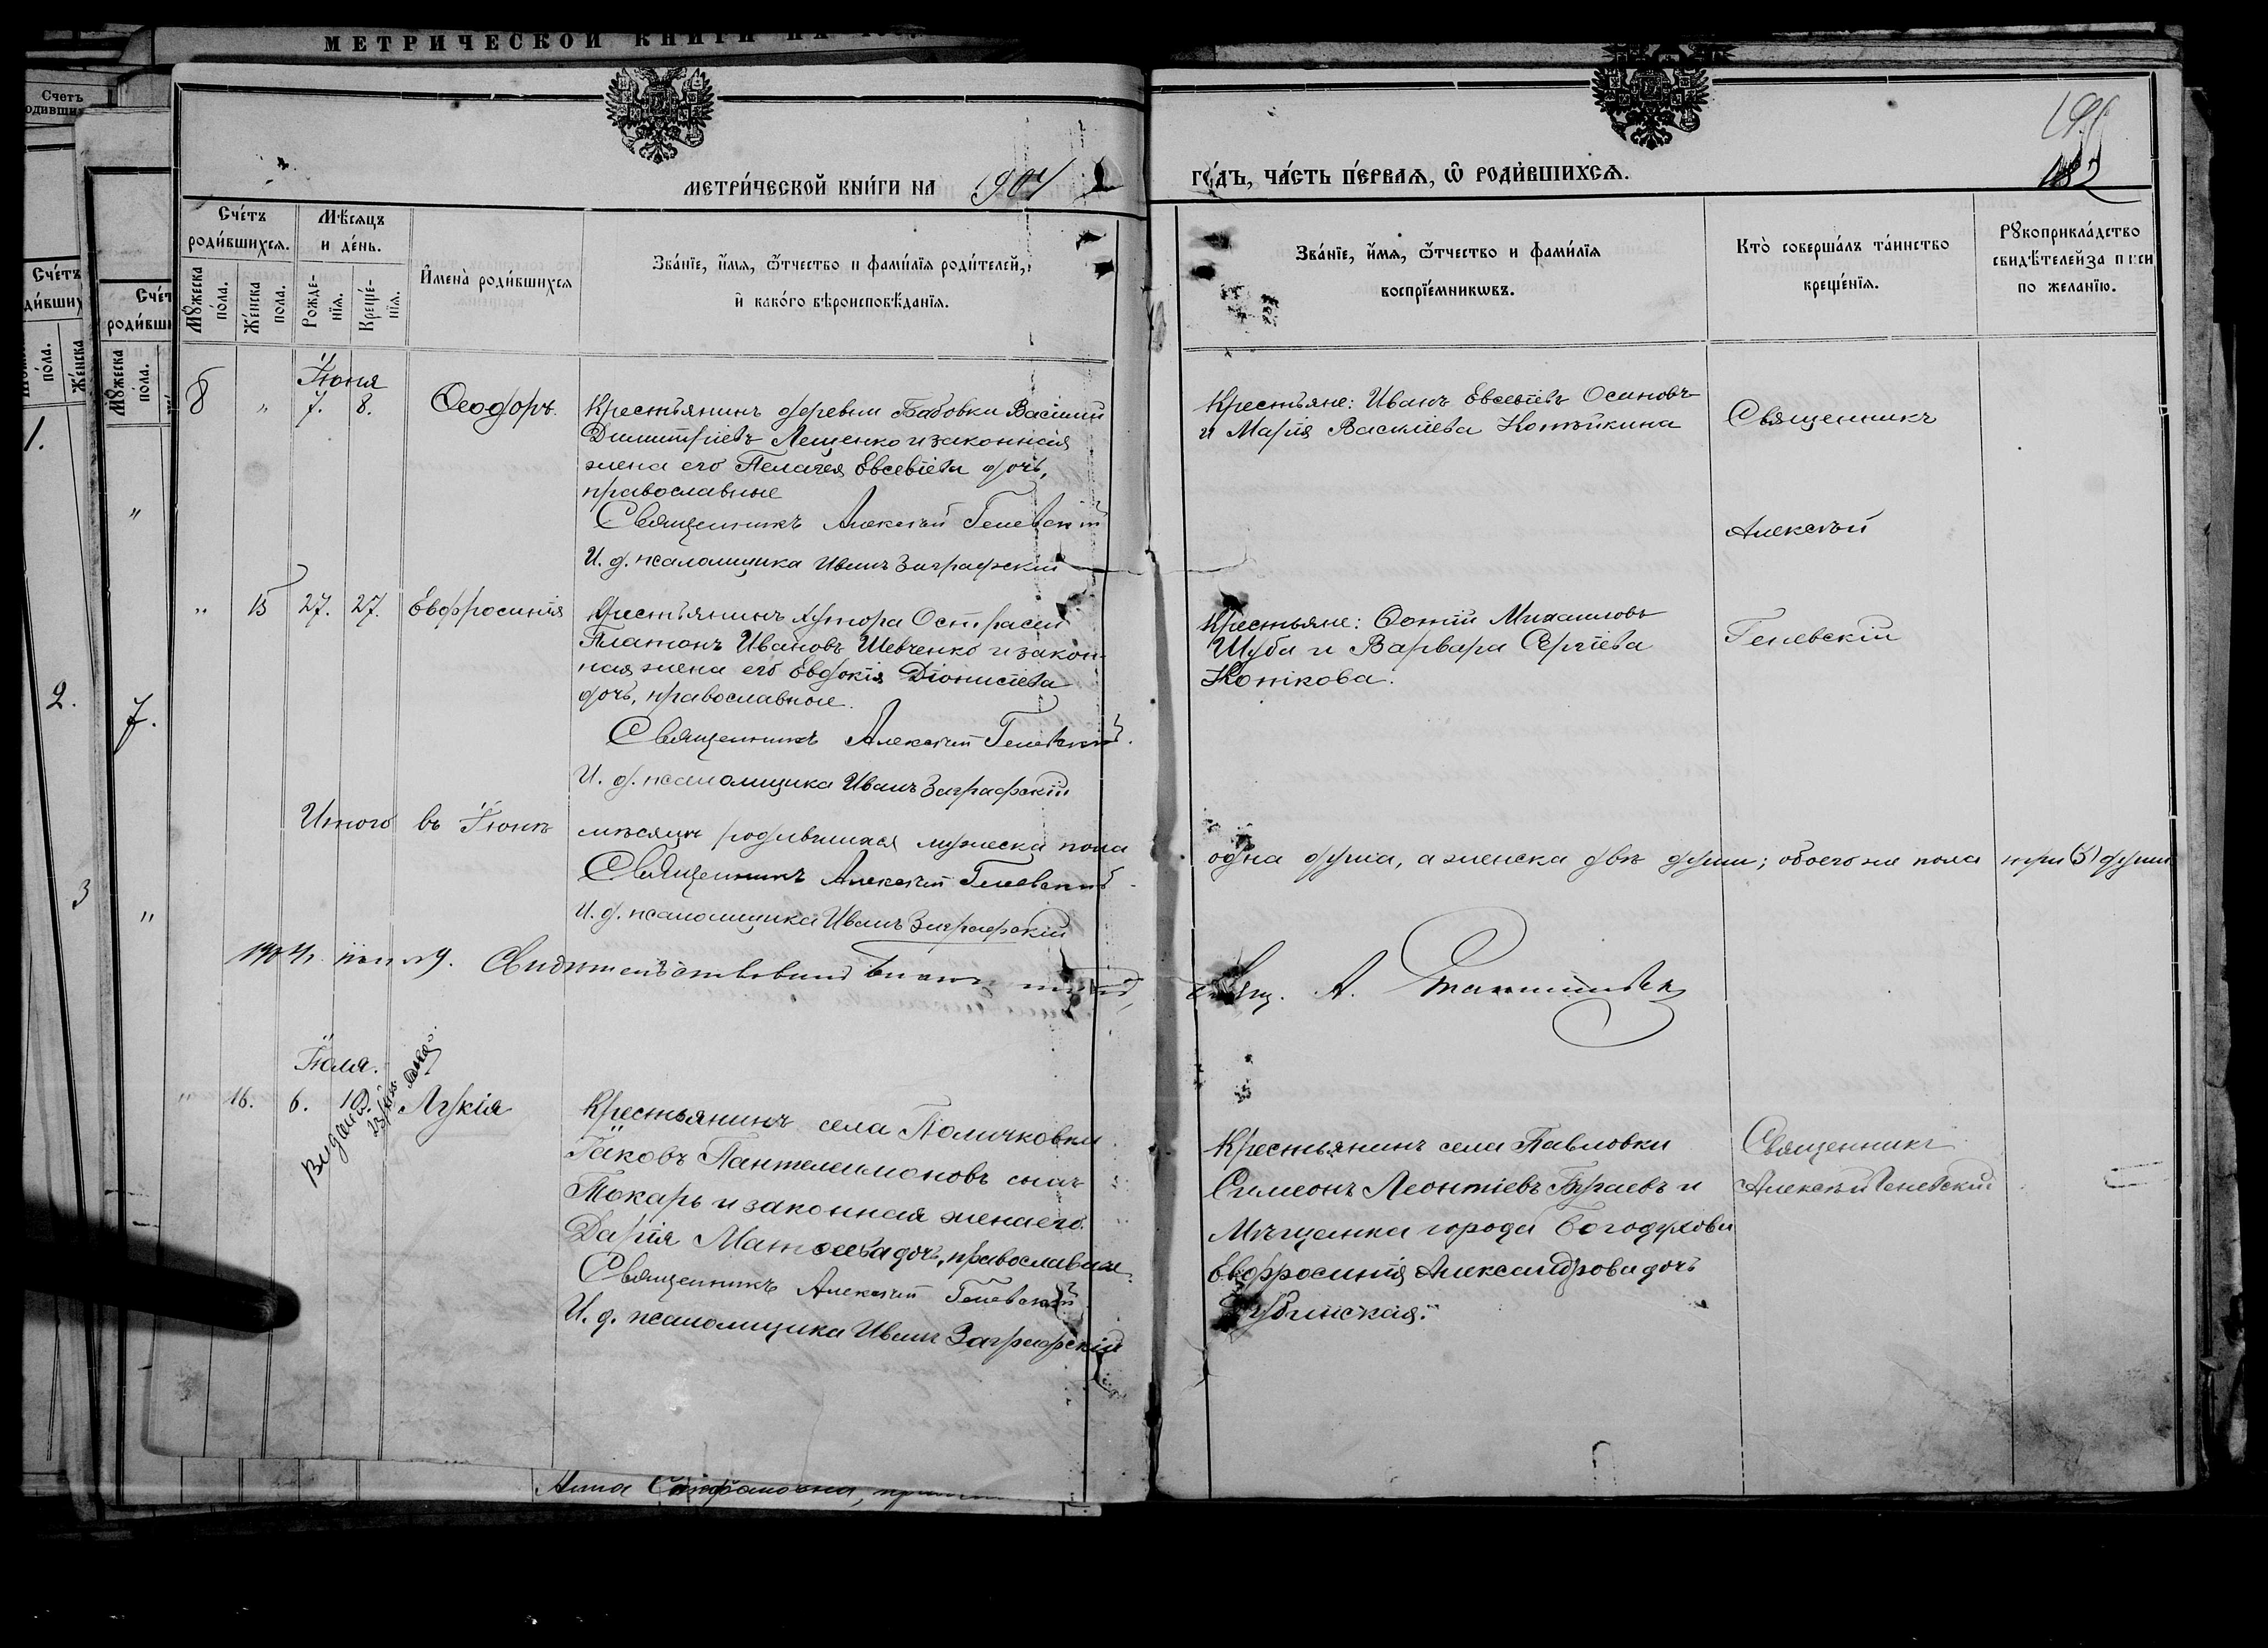 МЕТРИЧЕСКОЙ КНИГИ НА
метри́ческой кни́ги на 1904
го́дъ, ча́сть пе́рвая, ѿ роди́вшихся.
195
182
Сче́тъ роди́вшихся.
Мꙋ́жеска по́ла.
Же́нска по́ла.
Мѣ́сяцъ и де́нь.
Рожде́нїя.
Креще́нїя.
И҆мена̀ роди́вшихся
Зва́нїе, и҆́мя, ѻ҆́тчество и фами́лїя роди́телей,
и҆ како́гѡ вѣроисповѣ́данїя.
Зва́нїе, и҆́мя, ѻ҆́тчество и фами́лїя
воспрїе́мникѡвъ.
Кто̀ соверша́лъ та́инство
креще́нїя.
Рꙋкоприкла́дство
свидѣ́телей за писи
по жела́нїю.
Іюня
8 " 7. 8. Ѳеодоръ.
Крестьянинъ деревни Бабовки Василий
Димитріевъ Лещенко и законная
жена его Пелагея Евсевіева дочь,
православные
Священникъ Алексѣй Геневскій
И. д. псаломщика Иванъ Заграфскій
Крестьяне: Иванъ Евсевіевъ Осиновъ
и Марія Василіева Котѣйкина
Священникъ
Алексѣй
Геневскій
" 15 27. 27. Евфросинія
Крестьянинъ хутора Острасей
Платонъ Ивановъ Шевченко и закон-
ная жена его Евдокія Діонисіева
дочь, православные.
Священникъ Алексѣй Геневскій.
И. д. псаломщика Иванъ Заграфскій
Крестьяне: Фотій Михаиловъ
Шуба и Варвара Сергіева
Котікова.
Итого въ Іюнѣ мѣсяцѣ родившихся мужеска пола
одна душа, а женска двѣ души; обоего же пола три (3) души
Священникъ Алексѣй Геневскій.
И. д. псаломщика Иванъ Заграфскій
1904 г. 9. Свидѣтельствовалъ
А.
Іюля.
" 16. 6. 10. Лукія
Крестьянинъ села Поличковки
Іаковъ Пантелеимоновъ сынъ
Токарь и законная жена его
Дарія Матѳеева дочь, православные.
Священникъ Алексѣй Геневскій
И. д. псаломщика Иванъ Заграфскій
Крестьянинъ села Павловки
Симеонъ Леонтіевъ Бугаевъ и
Мѣщанка города Богодухова
Евфросинія Александрова дочь
Губинская.
Священникъ
Алексѣй Геневскій
Выдана
Анна